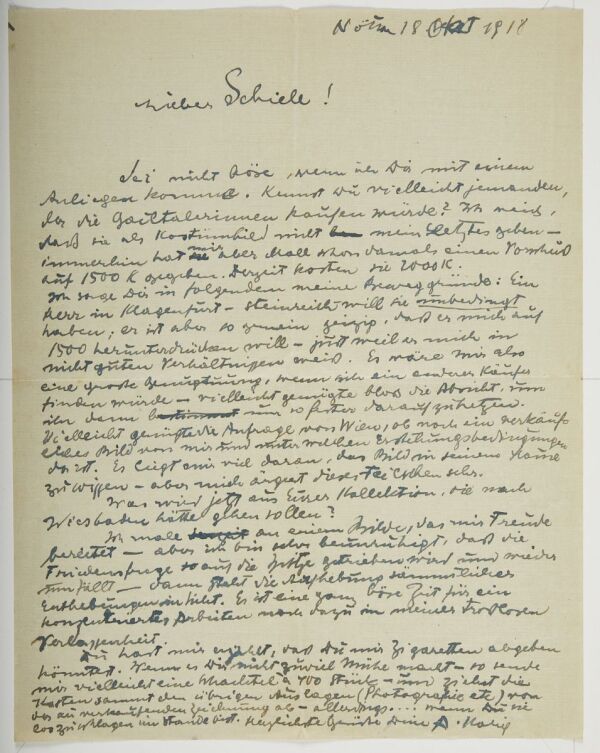 18 Okt 1918
Lieber Schiele!
Sei nicht böse, wenn ich Dir mit einem
Anliegen komme. Kennst Du vielleicht jemanden,
der die Gailtalerinnen kaufen würde? Ich weiß,
daß sie als Kostümbild nicht mein Letztes geben –
immerhin hat mir aber Moll schon damals einen Vorschuß
auf 1500 K gegeben. Derzeit kosten sie 2000 K.
Ich sage Dir in folgendem meine Beweggründe: Ein
Herr in Klagenfurt – steinreich will sie unbedingt
haben; er ist aber so gemein geizig, daß er mich auf
1500 herunterdrücken will – just weil er mich in
nicht guten Verhältnissen weiß. Es wäre mir also
eine große Genugtuung, wenn sich ein anderer Käufer
finden würde – vielleicht genügte bloß die Absicht, um
ihn dann bestimmt nur so fester darauf zu hetzen.
Vielleicht genügte die Anfrage von Wien, ob noch ein verkäuf-
liches Bild von mir und unter welchen Erstehungsbedingungen
da ist. Es liegt mir viel daran, das Bild in seinem Hause
zu wissen – aber mich ärgert dieses sehr.
Was wird jetzt aus Eurer Kollektion, die nach
Wiesbaden hätte gehen sollen?
Ich male derzeit an einem Bilde, das mir Freude
bereitet – aber ich bin sehr beunruhigt, daß die
Friedensfrage so auf die Spitze getrieben wird und wieder
umfällt – dann steht die Aufhebung sämmtlicher
Enthebungen in Sicht. Es ist eine ganz böse Zeit für ein
konzentriertes Arbeiten noch dazu in meiner trostlosen
Verlassenheit.
Du hast mir erzählt, daß Du mir Zigaretten abgeben
könntest. Wenn es Dir nicht zuviel Mühe macht – so sende
mir vielleicht eine Schachtel à 100 Stück – und ziehst die
Kosten sammt den übrigen Auslagen (Photographie etc) von
der zu verkaufenden Zeichnung ab – allerdings.... wenn Du sie
loszuschlagen im Stande bist. Herzlichste Grüße Dein